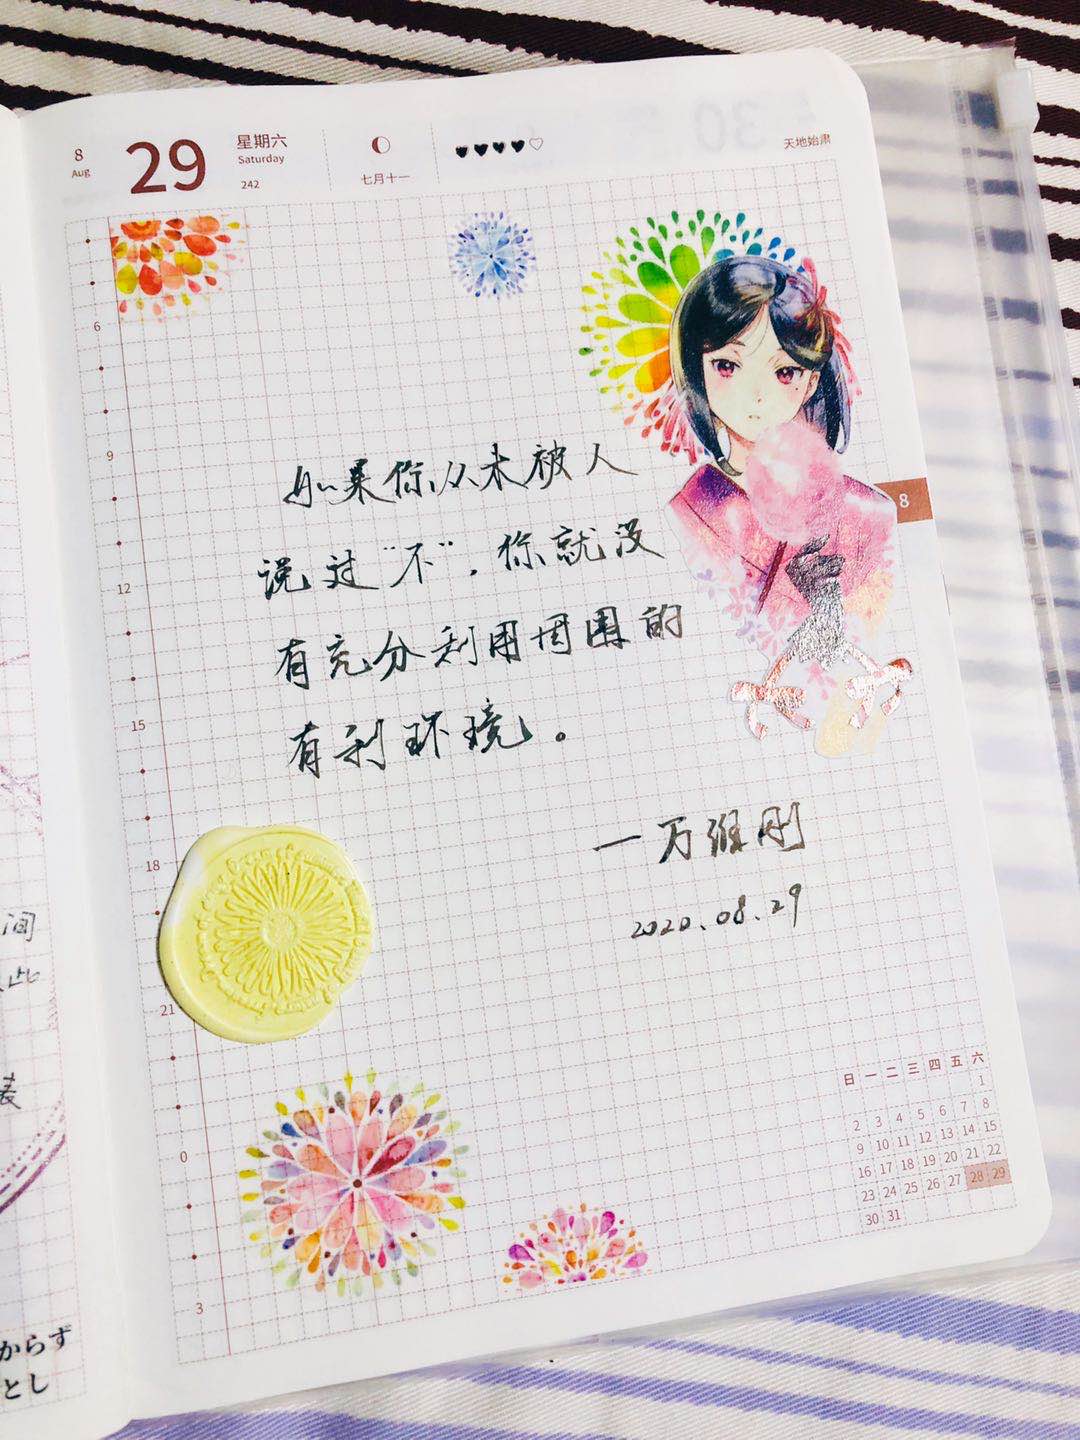 8
Aug
29
星期六
Saturday
242
七月十一
天地始肃
6
9
12
15
18
21
0
3
8
如果你从未被人
说过“不”，你就没
有充分利用周围的
有利环境。
一万维刚
2020.08.29
日 一 二 三 四 五 六
1
2 3 4 5 6 7 8
9 10 11 12 13 14 15
16 17 18 19 20 21 22
23 24 25 26 27 28 29
30 31
间
此
表
からず
とし